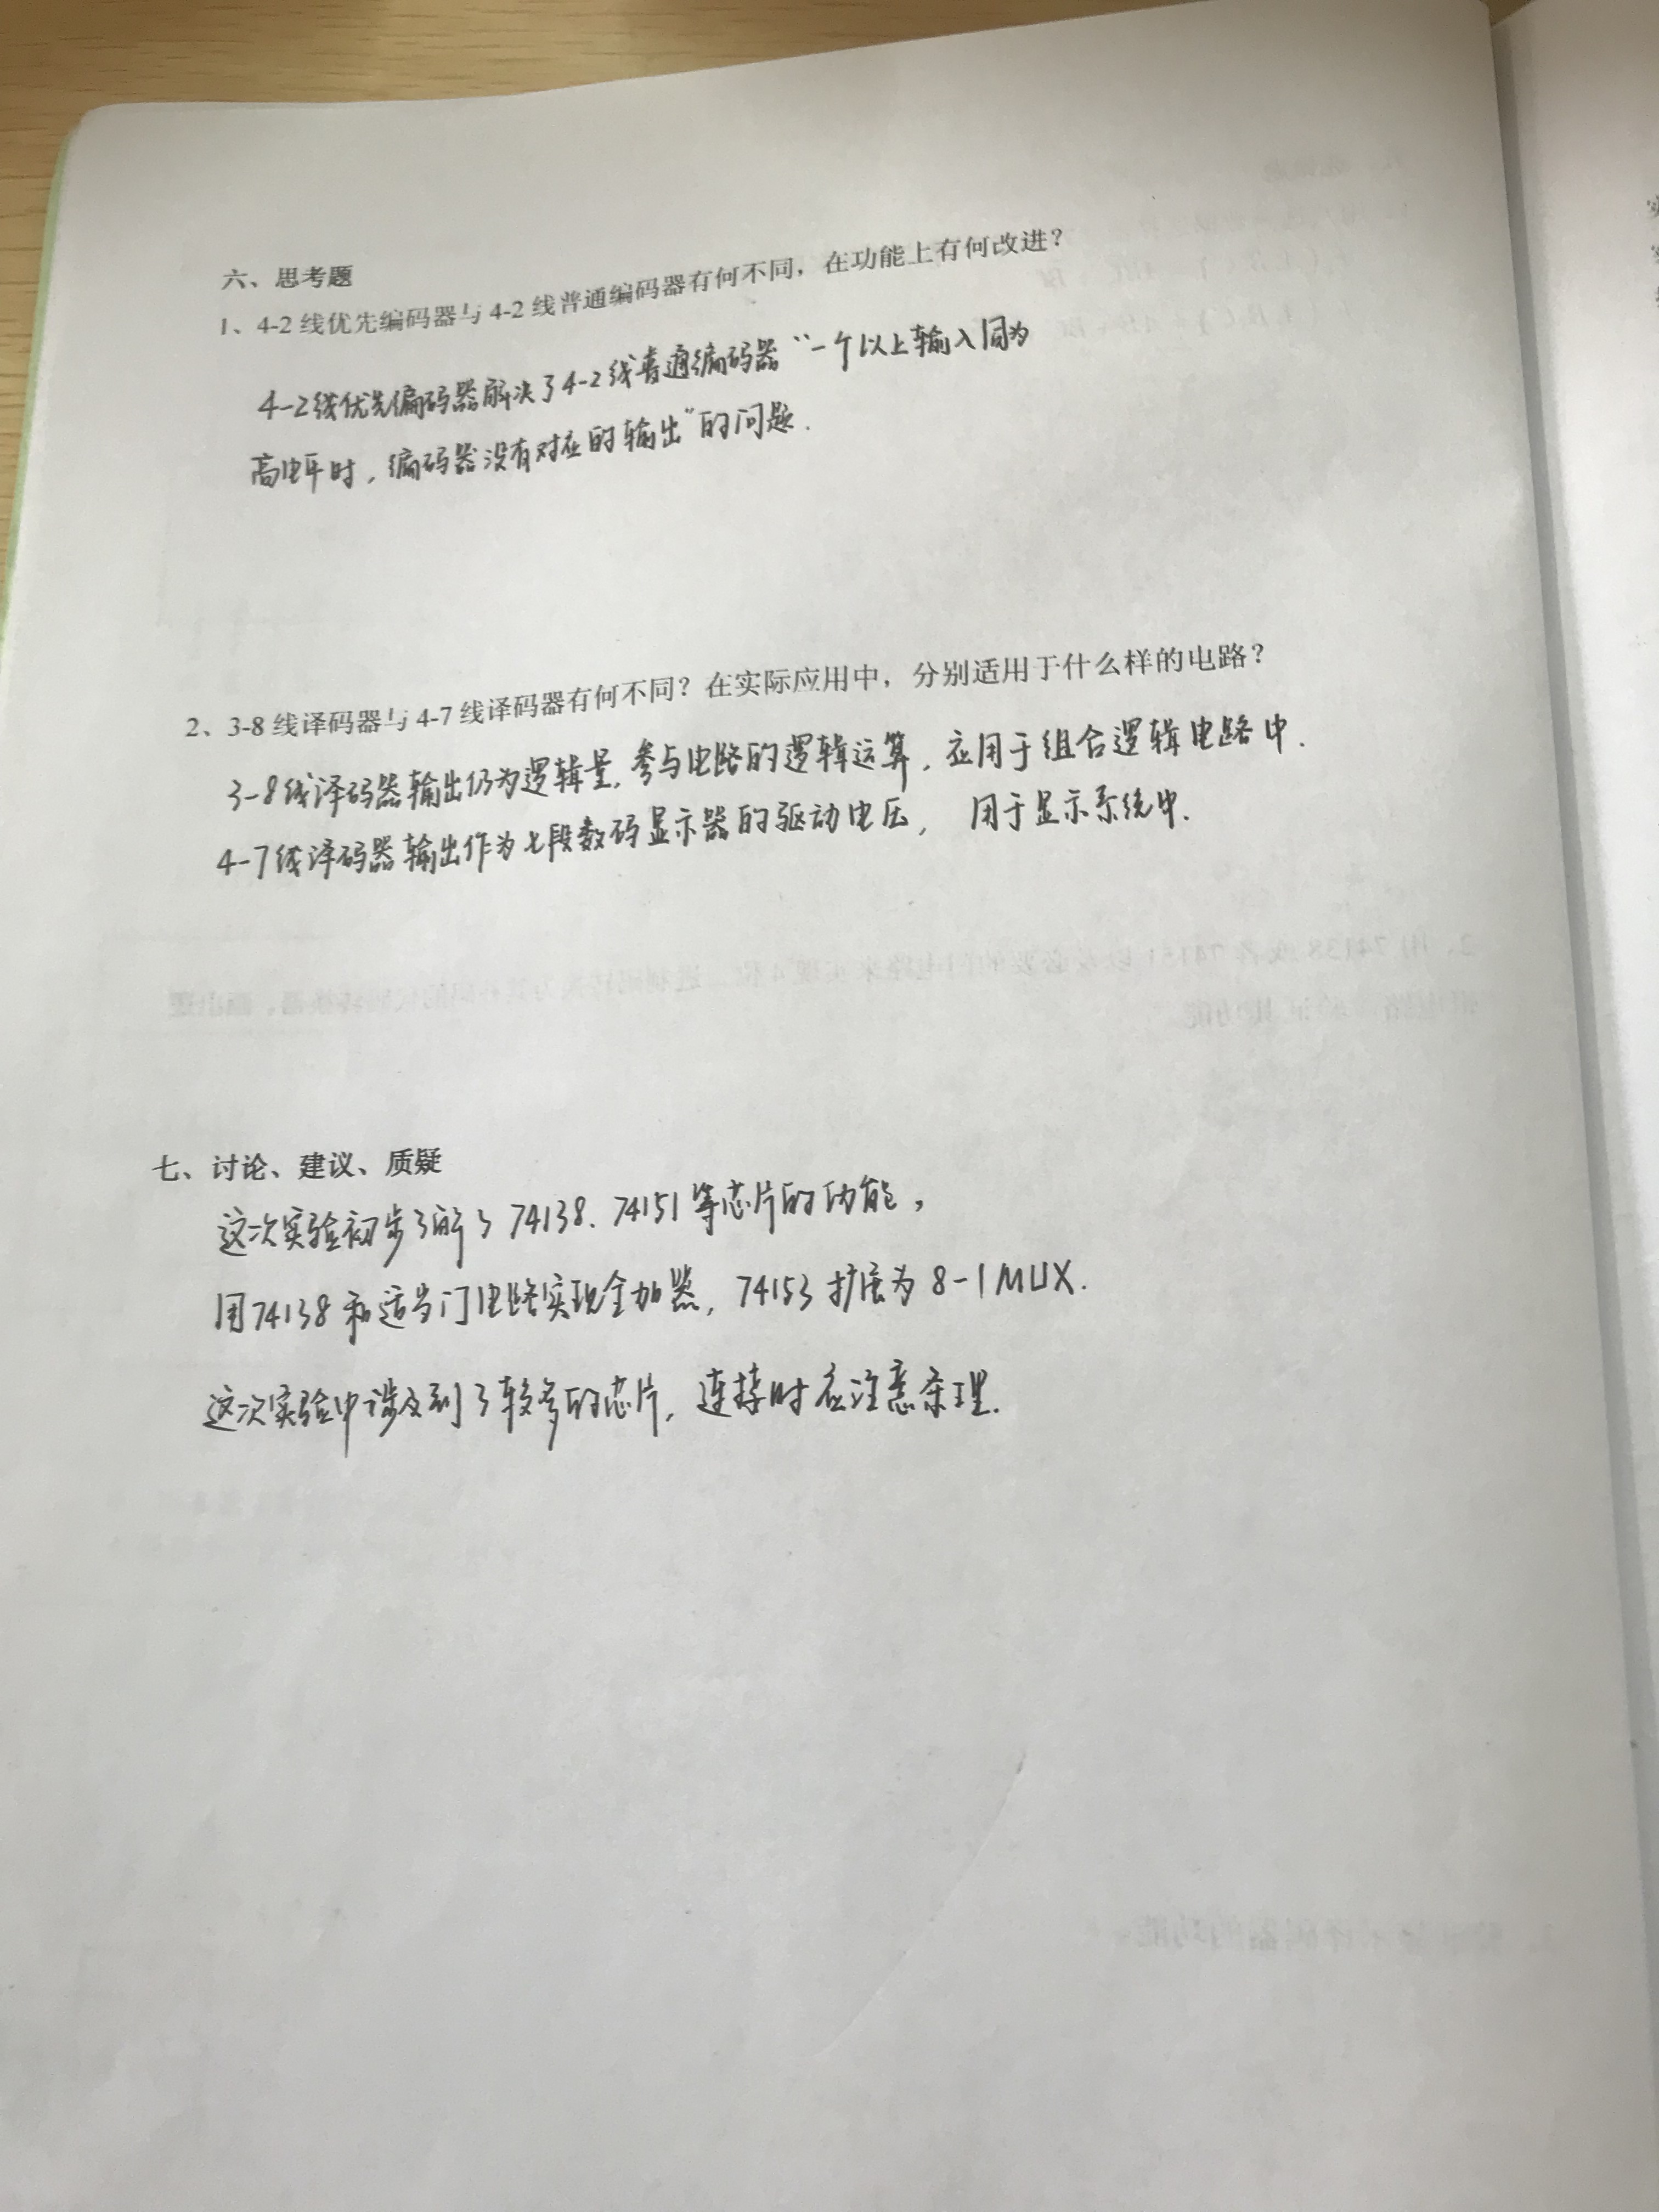 六、思考题
1、4-2 线优先编码器与 4-2 线普通编码器有何不同，在功能上有何改进？
4-2线优先编码器解决了4-2线普通编码器“一个以上输入同为
高电平时，编码器没有对应的输出”的问题.
2、3-8 线译码器与 4-7 线译码器有何不同？在实际应用中，分别适用于什么样的电路？
3-8线译码器输出仍为逻辑量,参与电路的逻辑运算，应用于组合逻辑电路中.
4-7线译码器输出作为七段数码显示器的驱动电压，用于显示系统中.
七、讨论、建议、质疑
这次实验初步了解了74138、74151等芯片的功能，
用74138和适当门电路实现全加器，74153扩展为8-1MUX.
这次实验中涉及到了较多的芯片，连接时应注意条理.